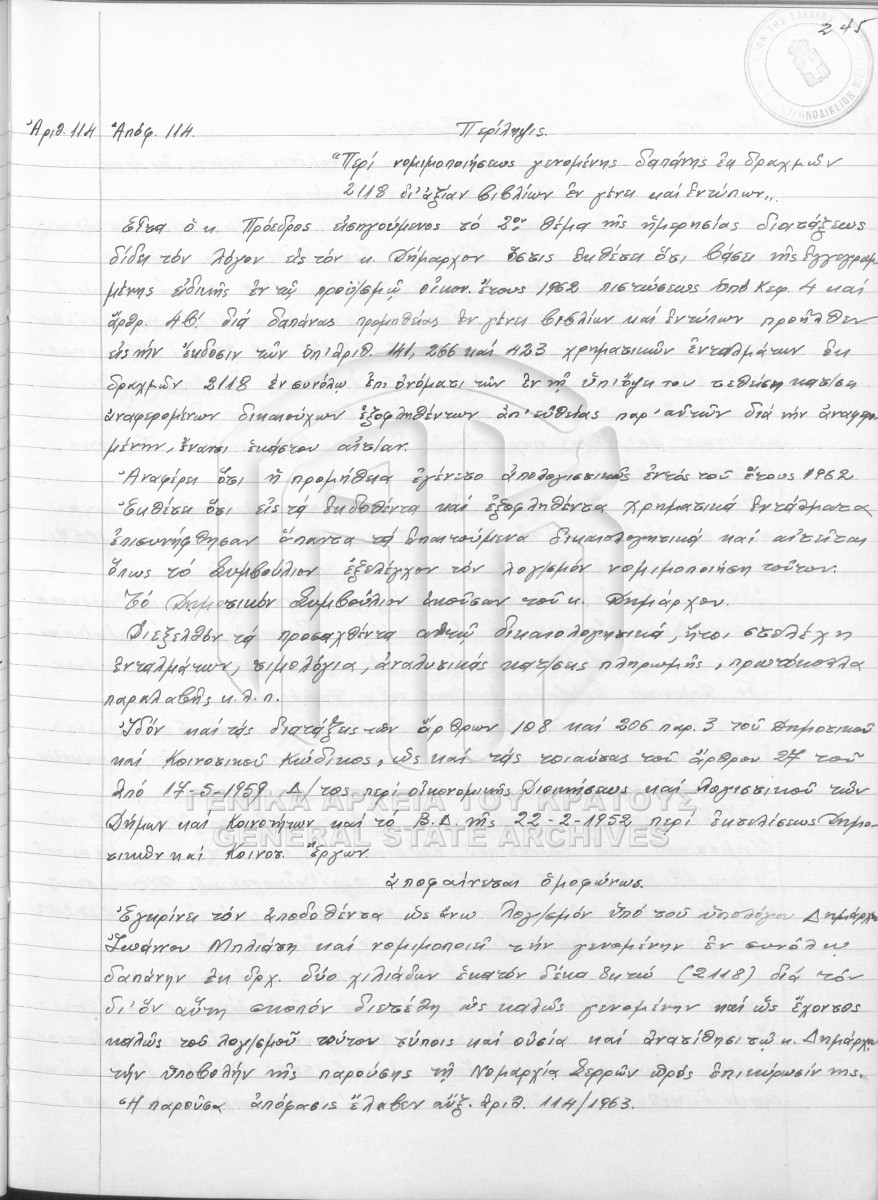 245
Ἀριθ. 114 Ἀπόφ. 114. Περίληψις.
"Περί νομιμοποιήσεως γενομένης δαπάνης ἐκ δραχμῶν
2118 δι' ἀξίαν βιβλίων ἐν γένει καί ἐντύπων".
Εἶτα ὁ κ. Πρόεδρος εἰσηγούμενος τό 2ον θέμα τῆς ἡμερησίας διατάξεως
δίδει τόν λόγον εἰς τόν κ. Δήμαρχον ὅστις ἐκθέτει ὅτι βάσει τῆς ἐγγεγραμ
μένης εἰδικῆς ἐν τῷ προϋ/σμῷ οἰκον. ἔτους 1962 πιστώσεως ὑπό Κεφ. 4 καί
ἄρθρ. 4Β' διά δαπάνας προμηθείας ἐν γένει βιβλίων καί ἐντύπων προῆλθεν
εἰς τήν ἔκδοσιν τῶν ὑπ' ἀριθ. 141, 266 καί 423 χρηματικῶν ἐνταλμάτων ἐκ
δραχμῶν 2118 ἐν συνόλῳ ἐπ' ὀνόματι τῶν ἐν τῇ ὑπ' ὄψει του τεθείσῃ κατ/σει
ἀναφερομένων δικαιούχων ἐξοφληθέντων ἀπ' εὐθείας παρ' αὐτῶν διά τήν ἀναφερο
μένην ἔναντι ἑκάστου αἰτίαν.
Ἀναφέρει ὅτι ἡ προμήθεια ἐγένετο ἀπολογιστικῶς ἐντός τοῦ ἔτους 1962
Ἐκθέτει ὅτι εἰς τά ἐκδοθέντα καί ἐξοφληθέντα χρηματικά ἐντάλματα
ἐπισυνήφθησαν ἅπαντα τά ἀπαιτούμενα δικαιολογητικά καί αἰτεῖται
ὅπως τό Συμβούλιον ἐξελέγχον τόν λογ/σμόν νομιμοποιήσῃ τοῦτον.
Τό Δημοτικόν Συμβούλιον ἀκοῦσαν τοῦ κ. Δημάρχου.
Διεξελθόν τά προσαχθέντα αὐτῷ δικαιολογητικά, ἤτοι στελέχη
ἐνταλμάτων, τιμολόγια, ἀναλυτικάς κατ/σεις πληρωμῆς, πρωτόκολλα
παραλαβῆς κ.λ.π.
Ἰδόν καί τάς διατάξεις τῶν ἄρθρων 108 καί 206 παρ. 3 τοῦ Δημοτικοῦ
καί Κοινοτικοῦ Κώδικος, ὡς καί τάς τοιαύτας τοῦ ἄρθρου 27 τοῦ
ἀπό 17-5-1959 Δ/τος περί οἰκονομικῆς Διοικήσεως καί λογιστικοῦ τῶν
Δήμων καί Κοινοτήτων καί τό Β.Δ. τῆς 22-2-1952 περί ἐκτελέσεως Δημο-
τικῶν καί Κοινοτ. Ἔργων.
ἀποφαίνεται ὁμοφώνως.
Ἐγκρίνει τόν ἀποδοθέντα ὡς ἄνω λογ/σμόν ὑπό τοῦ ὑπολόγου Δημάρχου
Ἰωάννου Μπλιάτη καί νομιμοποιεῖ τήν γενομένην ἐν συνόλῳ
δαπάνην ἐκ δρχ. δύο χιλιάδων ἑκατόν δέκα ὀκτώ (2118) διά τόν
δι' ὅν αὕτη σκοπόν διετέθη ὡς καλῶς γενομένην καί ὡς ἔχοντος
καλῶς τοῦ λογ/σμοῦ τούτου τύποις καί οὐσίᾳ καί ἀνατίθησι τῷ κ. Δημάρχῳ
τήν ὑποβολήν τῆς παρούσης τῇ Νομαρχίᾳ Σερρῶν πρός ἐπικύρωσίν της.
Ἡ παροῦσα ἀπόφασις ἔλαβεν αὔξ. ἀριθ. 114/1963.
ΓΕΝΙΚΑ ΑΡΧΕΙΑ ΤΟΥ ΚΡΑΤΟΥΣ
GENERAL STATE ARCHIVES